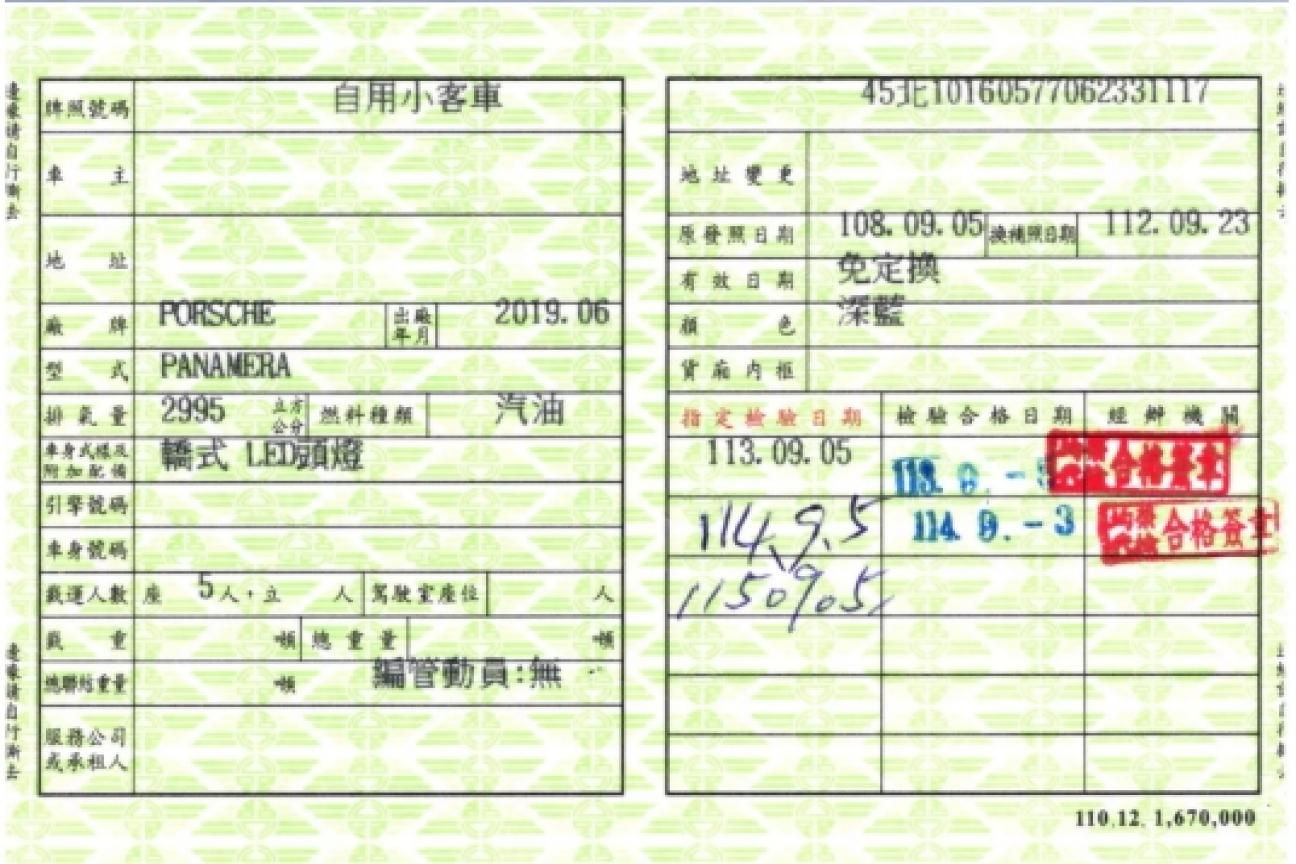 牌照號碼 自用小客車
車主
地址
廠牌 PORSCHE 出廠年月 2019.06
型式 PANAMERA
排氣量 2995 立方公分 燃料種類 汽油
車身式樣及附加配備 轎式 LED頭燈
引擎號碼
車身號碼
載運人數 座 5人,立 人 駕駛室座位 人
載重 噸 總重量 噸
總聯結重量 噸 編管動員:無
服務公司或承租人
邊條請自行撕去
邊條請自行撕去
45北10160577062331117
地址變更
原發照日期 108.09.05 換補照日期 112.09.23
有效日期 免定換
顏色 深藍
貨廂內框
指定檢驗日期 檢驗合格日期 經辦機關
113.09.05 113. 9. 合格簽章
114.9.5 114. 9. -3 合格簽章
1150905
110.12. 1,670,000